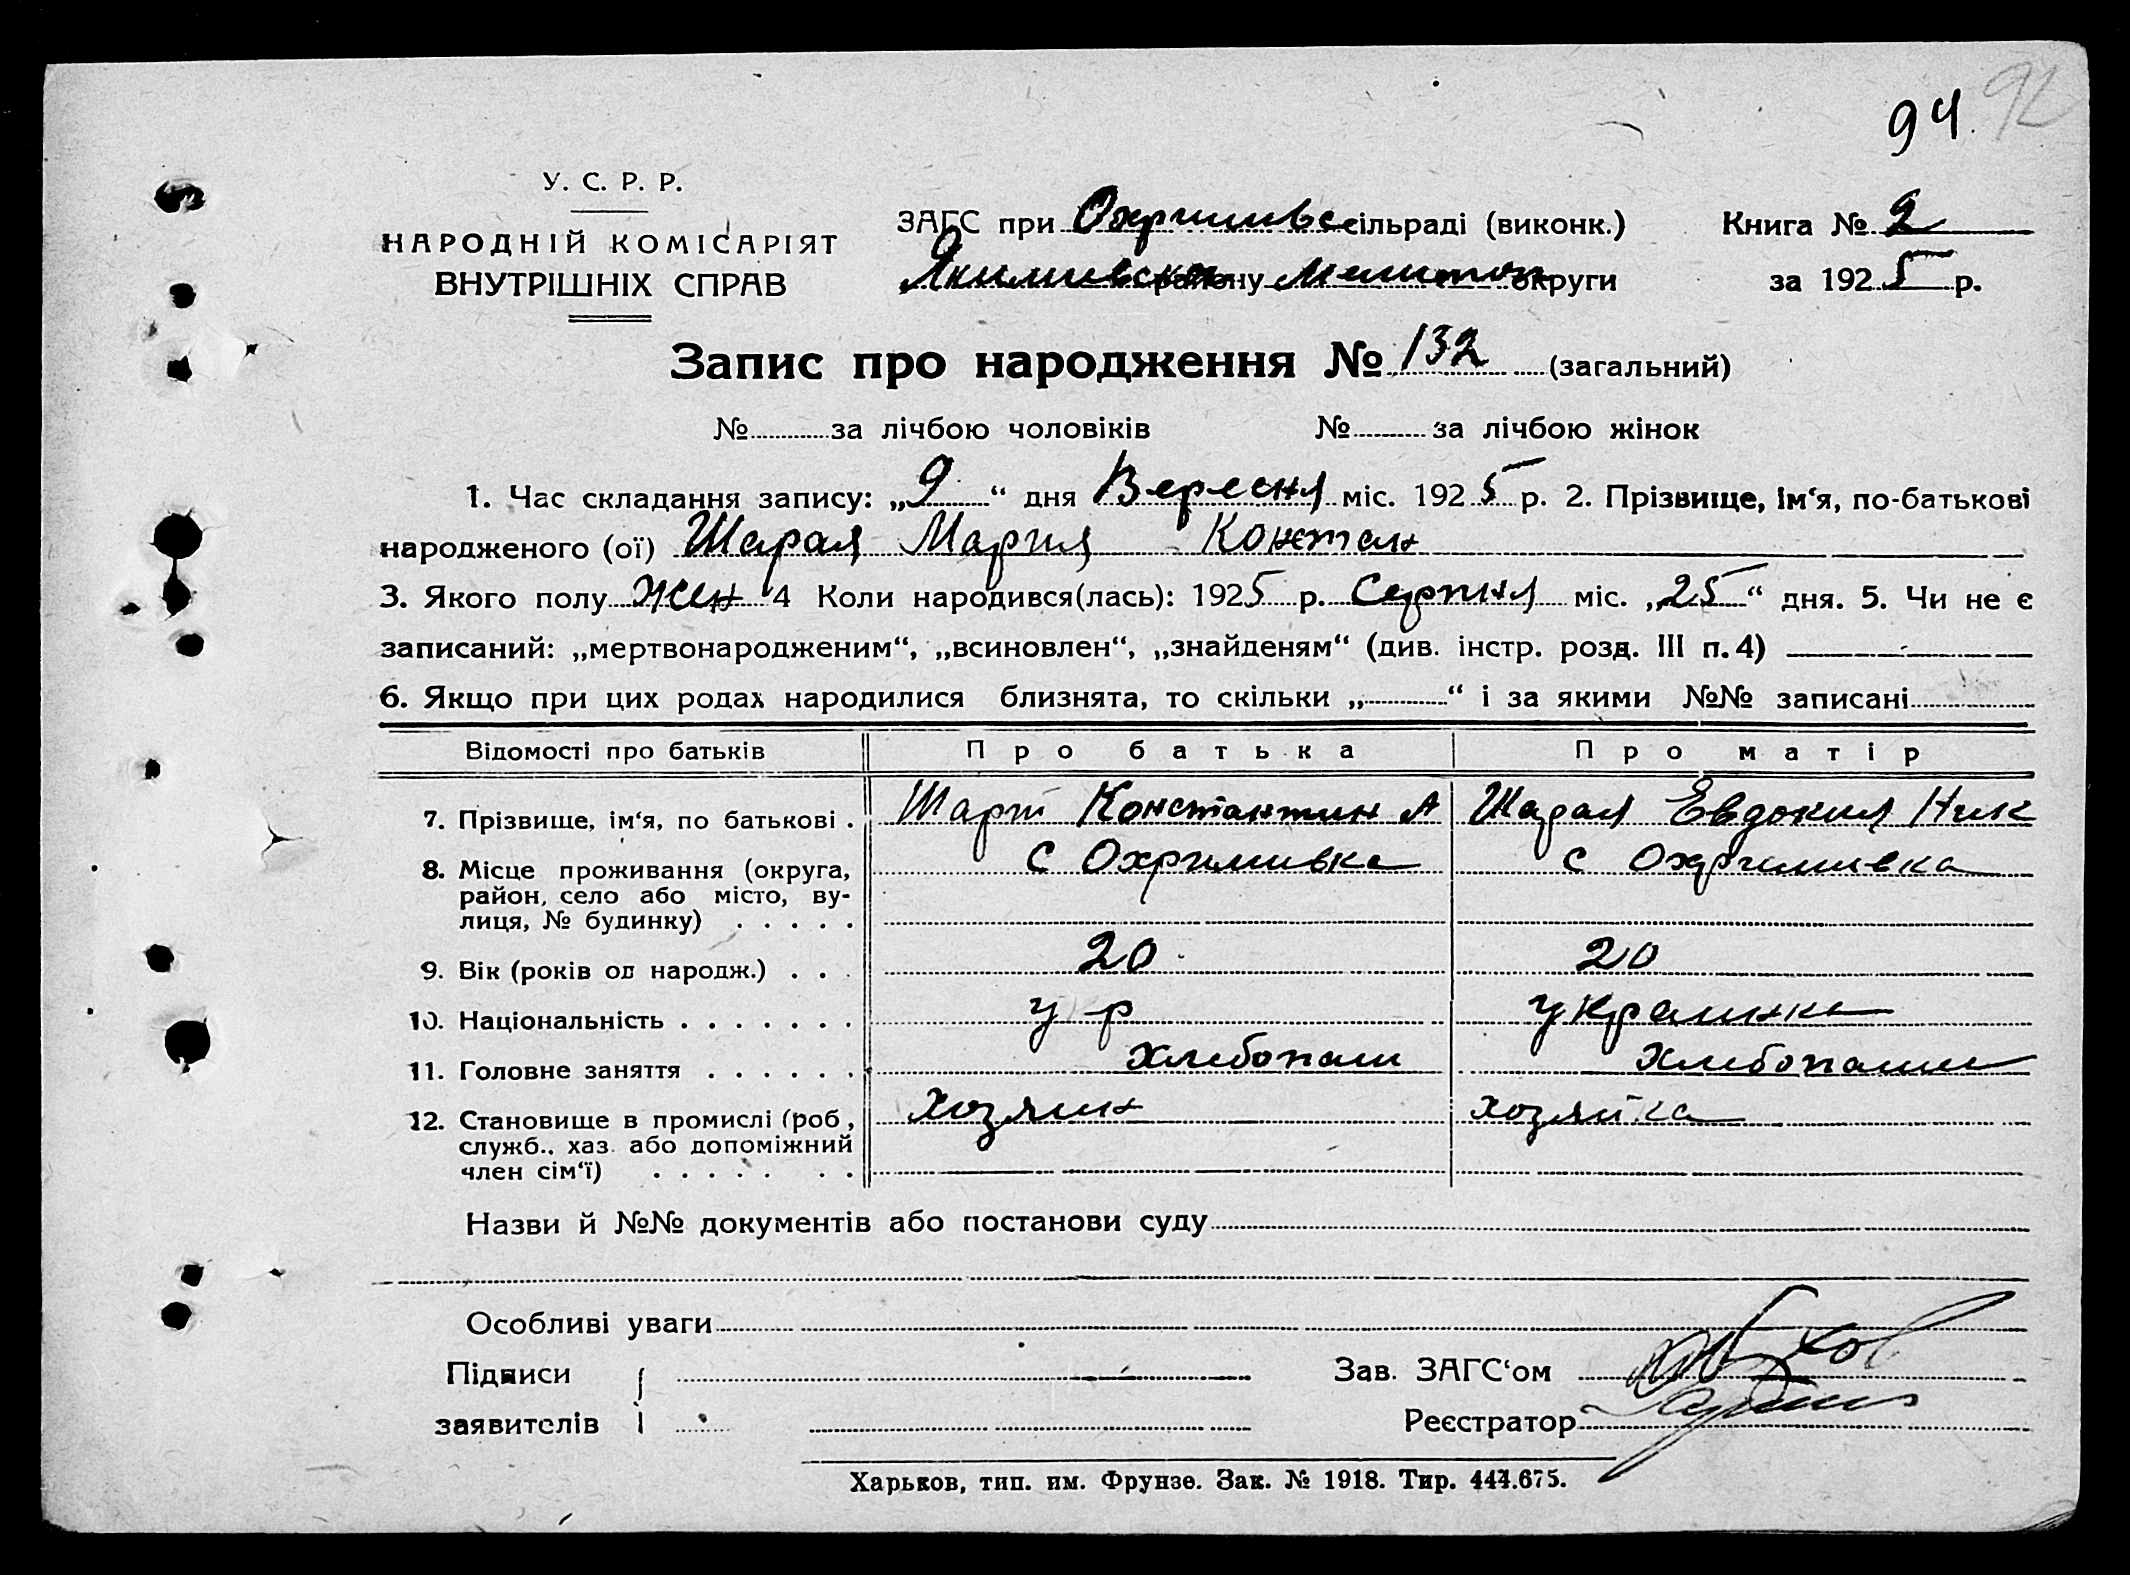 94. 92
У. С. Р. Р.
НАРОДНІЙ КОМІСАРІЯТ
ВНУТРІШНІХ СПРАВ
ЗАГС при Охримивс сільраді (виконк.)
Якимивско району Мелитоп округи
Книга № 2
за 1925 р.
Запис про народження № 132 (загальний)
№ за лічбою чоловіків № за лічбою жінок
1. Час складання запису: „9“ дня Вересня міс. 1925 р. 2. Прізвище, ім‘я, по-батькові
народженого (ої) Шарая Мария Констан
3. Якого полу Жен 4 Коли народився(лась): 1925 р. Серпня міс. „25“ дня. 5. Чи не є
записаний: „мертвонародженим“, „всиновлен“, „знайденям“ (див. інстр. розд. III п. 4)
6. Якщо при цих родах народилися близнята, то скільки „ “ і за якими №№ записані
Відомості про батьків Про батька Про матір
7. Прізвище, ім‘я, по батькові . Константин А Шарая Евдокия Ник
8. Місце проживання (округа, с Охримивка с Охримивка
район, село або місто, ву-
лиця, № будинку) . . . . .
9. Вік (років од народж.) . . . 20 20
10. Національність . . . . . . . укр украинка
11. Головне заняття . . . . . . хлебопаш хлебопашец
12. Становище в промислі (роб, хозяин хозяйка
служб., хаз. або допоміжний
член сім‘ї) . . . . . . .
Назви й №№ документів або постанови суду
Особливі уваги
Підписи
заявителів
Зав. ЗАГС‘ом
Реєстратор
Харьков, тип. им. Фрунзе. Зак. № 1918. Тир. 444.675.